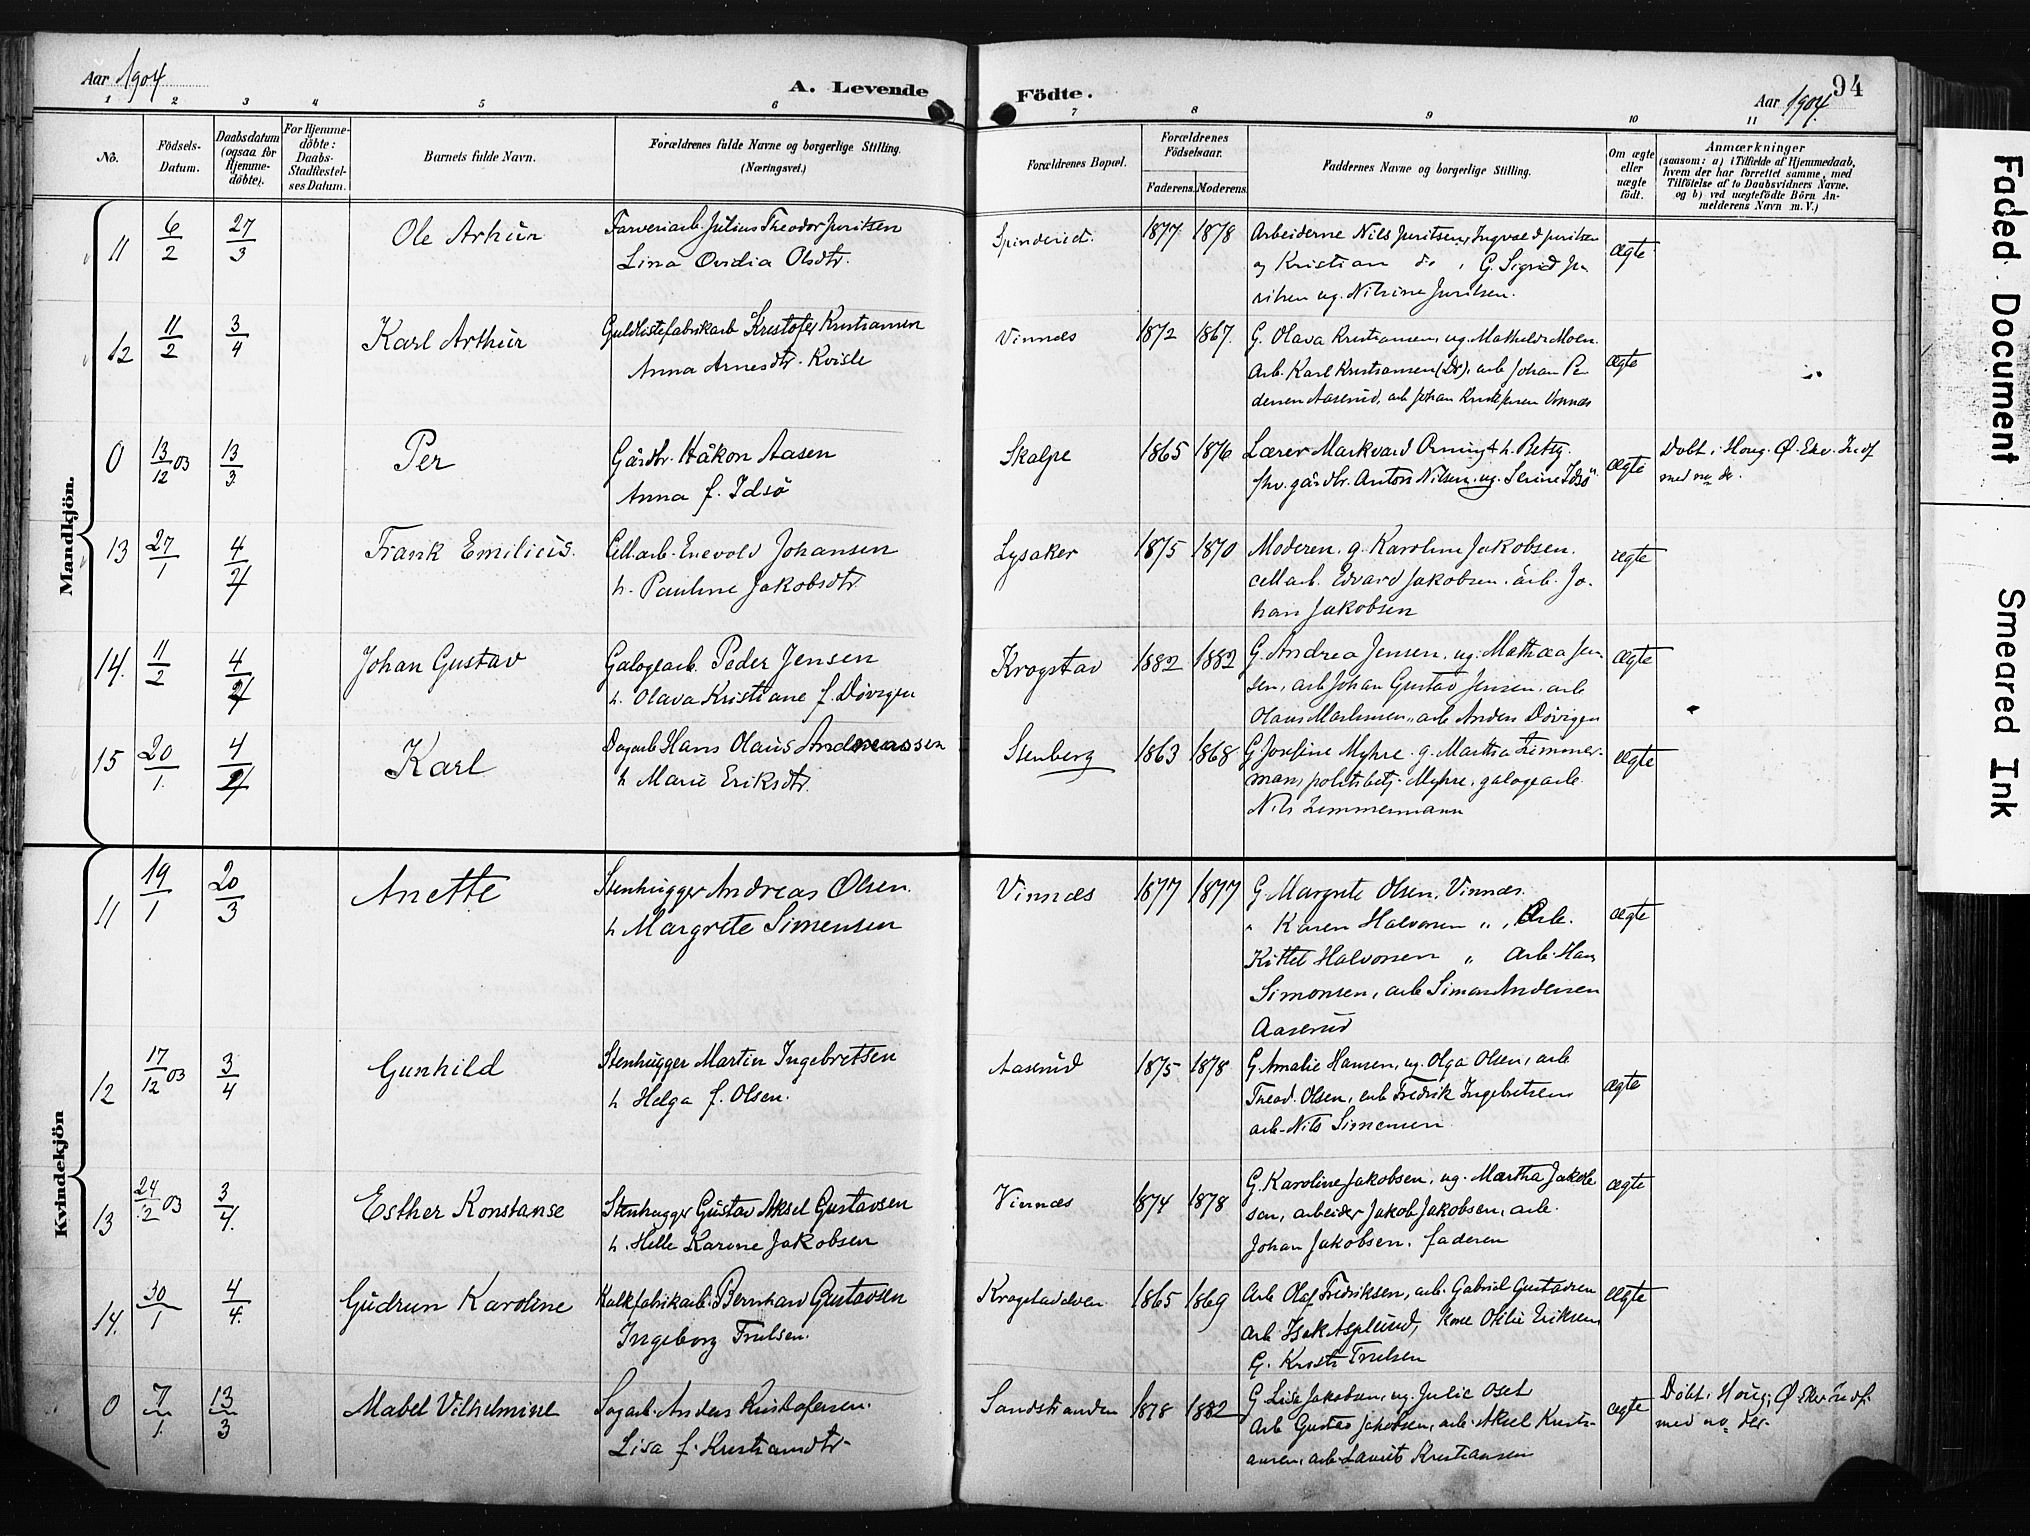 Aar 1904
A. Levende
Födte.
Aar 1904.
94
1 2 3 4 5 6 7 8 9 10 11
No.
Födsels-Datum.
Daabsdatum (ogsaa for Hjemme-döbte).
For Hjemme-döbte: Daabs-Stadfæstel-ses Datum.
Barnets fulde Navn.
Forældrenes fulde Navne og borgerlige Stilling.
(Næringsvei.)
Forældrenes Bopæl.
Forældrenes Födselsaar.
Faderens. Moderens.
Faddernes Navne og borgerlige Stilling.
Om ægte eller uægte födt.
Anmærkninger
(saasom: a) i Tilfælde af Hjemmedaab,
hvem der har forrettet samme, med
Tilföielse af to Daabsvidners Navne.
og b) ved uægtefödte Börn An-
melderens Navn m. V.)
Mandkjön.
11 6/2 27/3 Ole Arhur
Farveriarb. Julius Theodor Juritsen
Lina Ovidia Olsdtr.
Spinderiet. 1877 1878
Arbeiderne Nils Juritsen, Ingvald Juritsen
og Kristian do, G. Sigrid Ju
ritsen ug. Nilsine Juritsen.
ægte
12 11/2 3/4 Karl Arthur
Guldlistefabrikarb Kristofer Kristiansen
Anna Arnesdtr. Kvisle
Vinnæs 1872 1867.
G. Olava Kristiansen, ug. Mathilde Moen.
Arb. Karl Kristiansen (Dr), arb Johan Pe
dersen Aaserud, arb Johan Vinnæs
ægte
0 13/12 03 13/3 Per
Gårdbr. Håkon Aasen
Anna f. Idsö
Skalpe 1865 1876
Lærer Markvard Orning & h. Betsy.
fhv. gårdbr. Anton Nilsen. ug. Serine Idsö
ægte
Dobt i Houg. Ø. Eker. Indf
med no der.
13 27/1 4/4 Frank Emilius.
Cell.arb. Enevold Johansen
h. Pauline Jakobsdtr
Lysaker 1875 1870
Moderen. g. Karoline Jakobsen.
cellarb. Edvard Jakobsen. arb. Jo-
han Jakobsen
ægte
14. 11/2 4/4 Johan Gustav
Galogearb. Peder Jensen
h. Olava Kristiane f. Dövigen
Krogstad 1882 1882
G. Andrea Jensen. ug. Mathea Jen
sen, arb Johan Gustav Jensen. arb
Olaus Martinsen, arb Anders Dövigen
ægte
15 20/1. 4/4 Karl
Dagarb Hans Olaus Andreassen
h Marie Eriksdtr.
Stenberg 1863 1868
G Josefine Myhre. g. Martha Zimmer-
mann, politibetj. Myhre. galogearb.
Nils Zimmermann
ægte
Kvindekjön
11 19/1 20/3 Anette
Stenhugger Andreas Olsen.
h Margrete Simensen
Vinnæs 1877 1877
G. Margrete Olsen. Vinnæs.
" Karen Halvorsen ", Arb.
Kittel Halvorsen " arb. Hans
Simonsen, arb Simon Andersen
Aaserud
ægte
12 17/12 03 3/4 Gunhild
Stenhugger Martin Ingebretsen
h Helga f. Olsen.
Aaserud 1875 1878
G. Amalie Hansen, ug. Olga Olsen, arb
Theod. Olsen, arb Fredrik Ingebretsen
arb. Nils Simensen
ægte
13 24/12 03 3/4. Esther Konstanse
Stenhugger Gustav Aksel Gustavsen
h. Helle Karine Jakobsen
Vinnæs 1874 1878
G. Karoline Jakobsen, ug. Martha Jakob
sen, arbeider Jakob Jakobsen, arb.
Johan Jakobsen. faderen
ægte
14. 30/1 4/4. Gudrun Karoline
Kalkfabrikarb. Bernhard Gustavsen
Ingeborg Trulsen.
Krogstadelven 1865 1869
Arb Olaf Fredriksen, arb. Gabriel Gustavsen
arb Isak Asplund, Kone Otilie Eriksen
G. Kristi Trulsen
ægte
0 7/1. 13/3 Mabel Vilhelmine
Sagarb. Anders Kristofersen.
Lisa f. Kristiansdtr.
Sandstranden 1878 1882
G. Lise Jakobsen, ug. Julie Oset
Arb Gustav Jakobsen, arb. Aksel Kristi-
ansen, arb. Laurits Kristiansen
ægte
Döbt i Houg, Ø Eker Indf.
med no der.
Faded Document
Smeared Ink